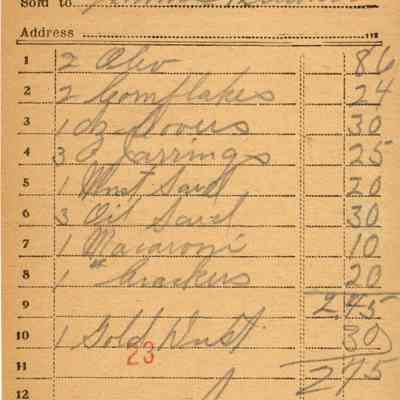 Sold to
Address 192
1 2 Oleo 86
2 2 Cornflakes 24
3 1 dz Covers 30
4 3 Jarrings 25
5 1 Must Sard 20
6 3 Oil Sard 30
7 1 Macaroni 10
8 1 " Crackers 20
9 2.45
10 1 Gold Dust 30
23
11 275
12